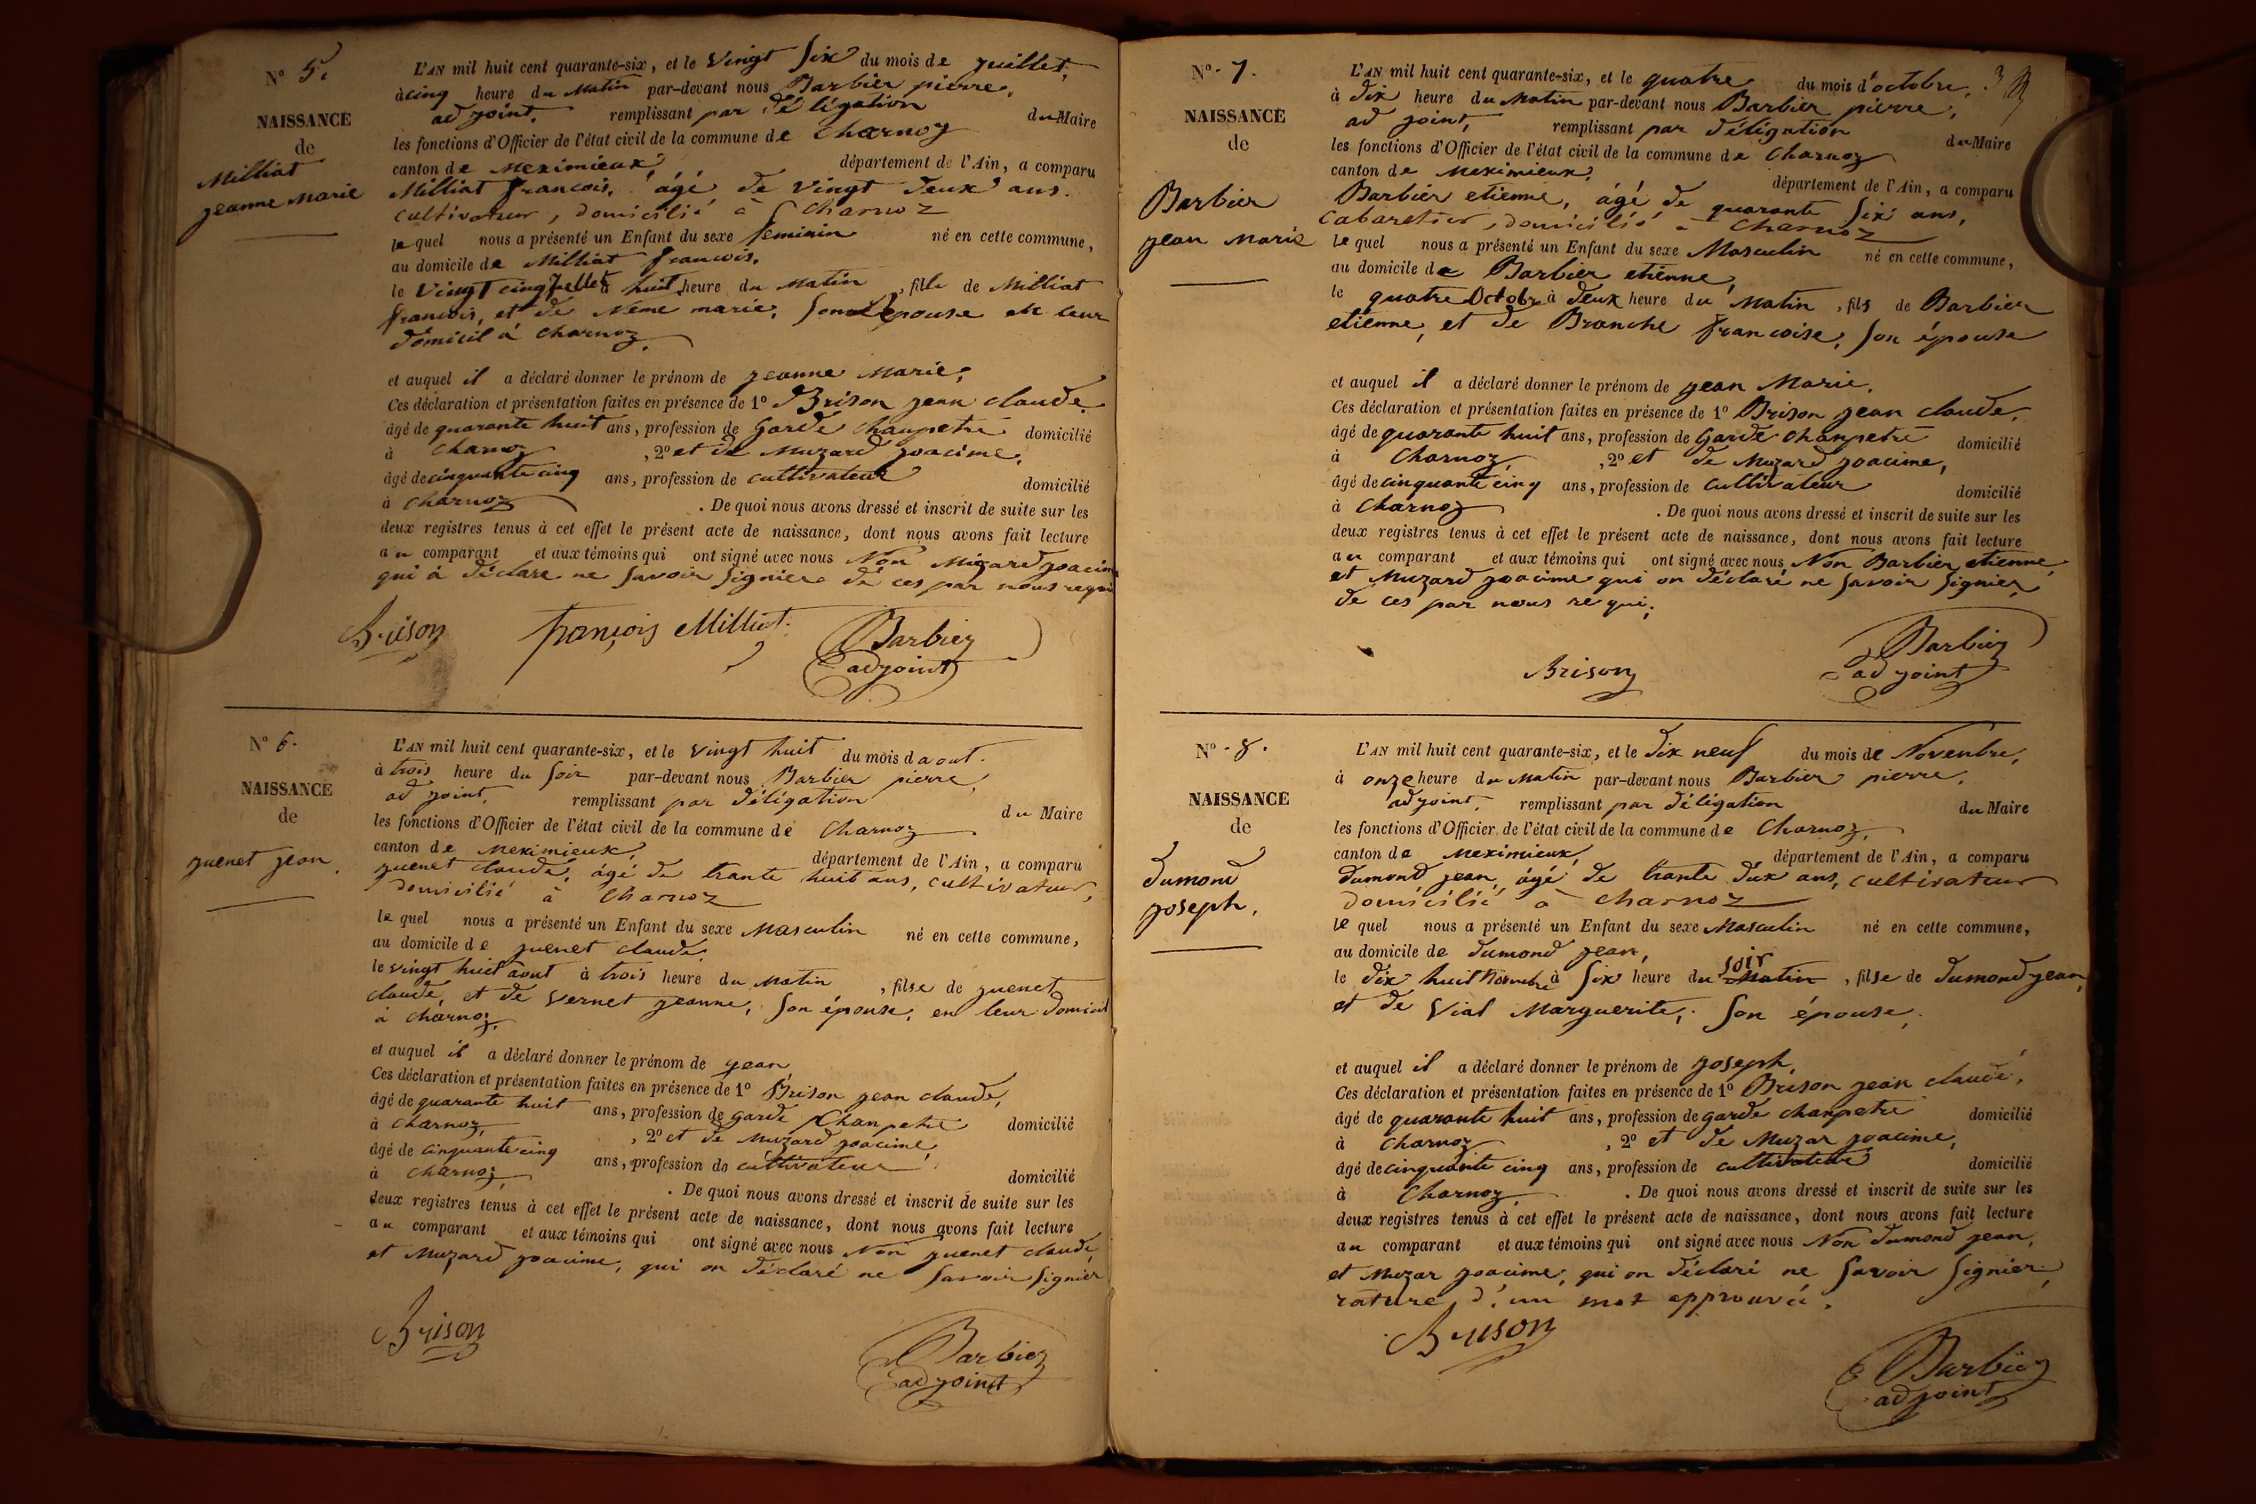 N° 5.
NAISSANCE
de
Milliat
jeanne Marie
L'AN mil huit cent quarante-six, et le vingt Six du mois de juillet,
à cinq heure du Matin par-devant nous Barbier pierre,
adjoint, remplissant par déligation du Maire
les fonctions d'Officier de l'état civil de la commune de Charnoz
canton de Meximieux, département de l'Ain, a comparu
Milliat francois, âgé de vingt deux ans.
cultivateur, domicilié à Charnoz
lequel nous a présenté un Enfant du sexe feminin né en cette commune,
au domicile de Milliat francois,
le vingt cinq juillet à huit heure du Matin, fille de Milliat
francois, et de Neme marie, Son Epouse de leur
domicil à Charnoz,
et auquel il a déclaré donner le prénom de jeanne Marie,
Ces déclaration et présentation faites en présence de 1° Brison jean claude,
âgé de quarante huit ans, profession de Garde Chanpetre domicilié
à Charnoz, 2° et de Muzard joacime,
âgé de cinquante cinq ans, profession de cultivateur domicilié
à Charnoz. De quoi nous avons dressé et inscrit de suite sur les
deux registres tenus à cet effet le présent acte de naissance, dont nous avons fait lecture
au comparant et aux témoins qui ont signé avec nous Non Muzard joacim
qui à déclare ne Savoir Signier de ces par nous requi
Brison françois Milliat Barbier
adjoint
N° 6.
NAISSANCE
de
juenet jean
L'AN mil huit cent quarante-six, et le vingt huit du mois d aout.
à trois heure du Soir par-devant nous Barbier pierre,
adjoint, remplissant par déligation du Maire
les fonctions d'Officier de l'état civil de la commune de Charnoz
canton de Meximieux, département de l'Ain, a comparu
juenet claude, âgé de trante huit ans, cultivateur,
domicilié à Charnoz
lequel nous a présenté un Enfant du sexe Masculin né en cette commune,
au domicile de juenet claude,
le vingt huit aout à trois heure du Matin, filse de juenet
claude, et de Vernet jeanne, Son épouse, en leur domicil
à Charnoz,
et auquel il a déclaré donner le prénom de jean,
Ces déclaration et présentation faites en présence de 1° Brison jean claude,
âgé de quarante huit ans, profession de garde Chanpetre domicilié
à Charnoz, 2° et de Muzard joacime,
âgé de cinquante cinq ans, profession de cultivateur domicilié
à Charnoz. De quoi nous avons dressé et inscrit de suite sur les
deux registres tenus à cet effet le présent acte de naissance, dont nous avons fait lecture
au comparant et aux témoins qui ont signé avec nous Non juenet claude,
et Muzard joacime, qui on déclaré ne Savoir Signier
Brison Barbier
adjoint
N° 7.
NAISSANCE
de
Barbier
jean Marie
L'AN mil huit cent quarante-six, et le quatre du mois d'octobre, 3
à dix heure du Matin par-devant nous Barbier pierre,
adjoint, remplissant par déligation du Maire
les fonctions d'Officier de l'état civil de la commune de Charnoz
canton de Meximieux, département de l'Ain, a comparu
Barbier etienne, âgé de quarante Six ans,
Cabaretier, domicilié à Charnoz
lequel nous a présenté un Enfant du sexe Masculin né en cette commune,
au domicile de Barbier etienne,
le quatre Octobre à deux heure du Matin, fils de Barbier
etienne, et de Branche francoise, Son épouse
et auquel il a déclaré donner le prénom de jean Marie,
Ces déclaration et présentation faites en présence de 1° Brison jean claude,
âgé de quarante huit ans, profession de Garde Chanpetre domicilié
à Charnoz, 2° et de Muzard joacime,
âgé de cinquante cinq ans, profession de cultivateur domicilié
à Charnoz. De quoi nous avons dressé et inscrit de suite sur les
deux registres tenus à cet effet le présent acte de naissance, dont nous avons fait lecture
au comparant et aux témoins qui ont signé avec nous Non Barbier etienne,
et Muzard joacime qui on déclaré ne Savoir Signier,
de ces par nous requi,
Brison Barbier
adjoint
N° 8.
NAISSANCE
de
dumond
joseph,
L'AN mil huit cent quarante-six, et le dix neuf du mois de Novenbre,
à onze heure du Matin par-devant nous Barbier pierre,
adjoint, remplissant par déligation du Maire
les fonctions d'Officier de l'état civil de la commune de Charnoz,
canton de Meximieux, département de l'Ain, a comparu
dumond jean, âgé de trante dux ans, cultivateur
domicilié à Charnoz
lequel nous a présenté un Enfant du sexe Masculin né en cette commune,
au domicile de dumond jean,
le dix huit Novenbre à Six heure du Matin soir, filse de dumond jean,
et de Vial Marguerite, Son épouse,
et auquel il a déclaré donner le prénom de joseph,
Ces déclaration et présentation faites en présence de 1° Brison jean claude,
âgé de quarante huit ans, profession de garde chanpetre domicilié
à Charnoz, 2° et de Muzar joacime,
âgé de cinquante cinq ans, profession de cultivateur domicilié
à Charnoz. De quoi nous avons dressé et inscrit de suite sur les
deux registres tenus à cet effet le présent acte de naissance, dont nous avons fait lecture
au comparant et aux témoins qui ont signé avec nous Non dumond jean,
et Muzar joacime, qui on déclaré ne Savoir Signier,
rature d'un mot approuvé.
Brison Barbier
adjoint